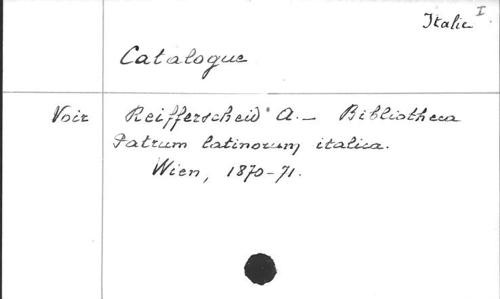 Italie I
Catalogue
Voir Reifferscheid A. - Bibliotheca
Patrum latinorum italica.
Wien, 1870-71.